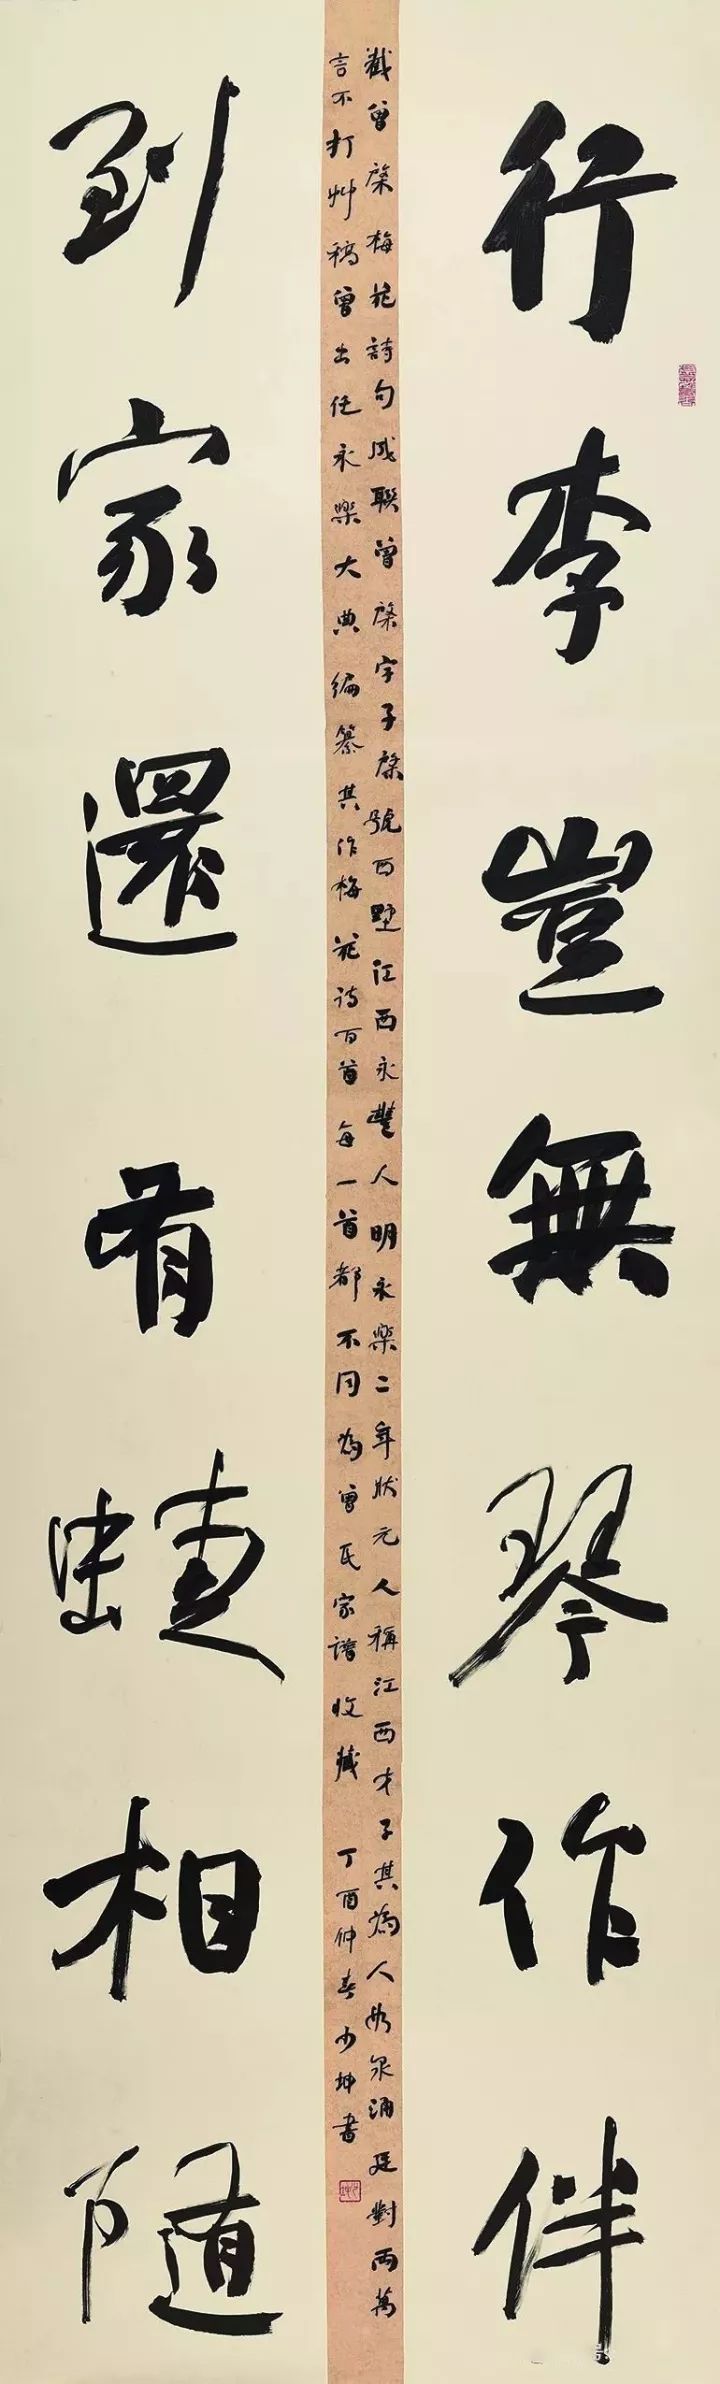 行李豈無琴作伴
截曾棨梅花詩句成聯曾棨字子棨號西墅江西永豐人明永樂二年狀元人稱江西才子其為人如泉涌廷對兩萬
言不打艸稿曾出任永樂大典編纂其作梅花詩百首每一首都不同為曾氏家譜收藏 丁酉仲春少坤書
到家還有鶴相隨